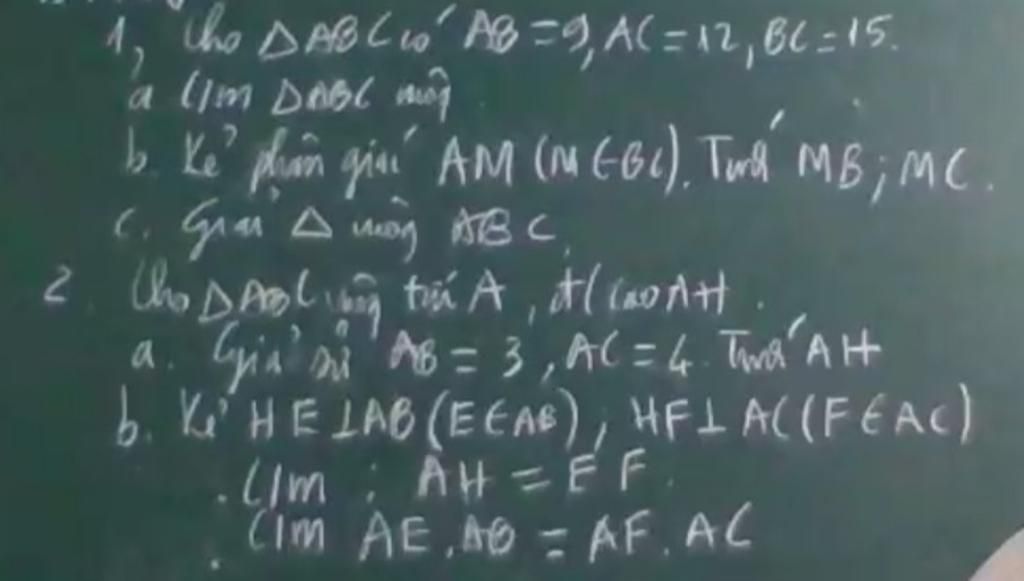 1, Cho △ABC có AB = 9, AC = 12, BC = 15.
a C/m △ABC vuông
b. Kẻ phân giác AM (M ∈ BC). Tính MB; MC.
c. Giải △ vuông ABC.
2. Cho △ABC vuông tại A, đ/cao AH.
a. Giả sử AB = 3, AC = 4 Tính AH
b. Kẻ HE ⊥ AB (E ∈ AB), HF ⊥ AC (F ∈ AC)
. C/m : AH = EF.
. C/m AE. AB = AF. AC